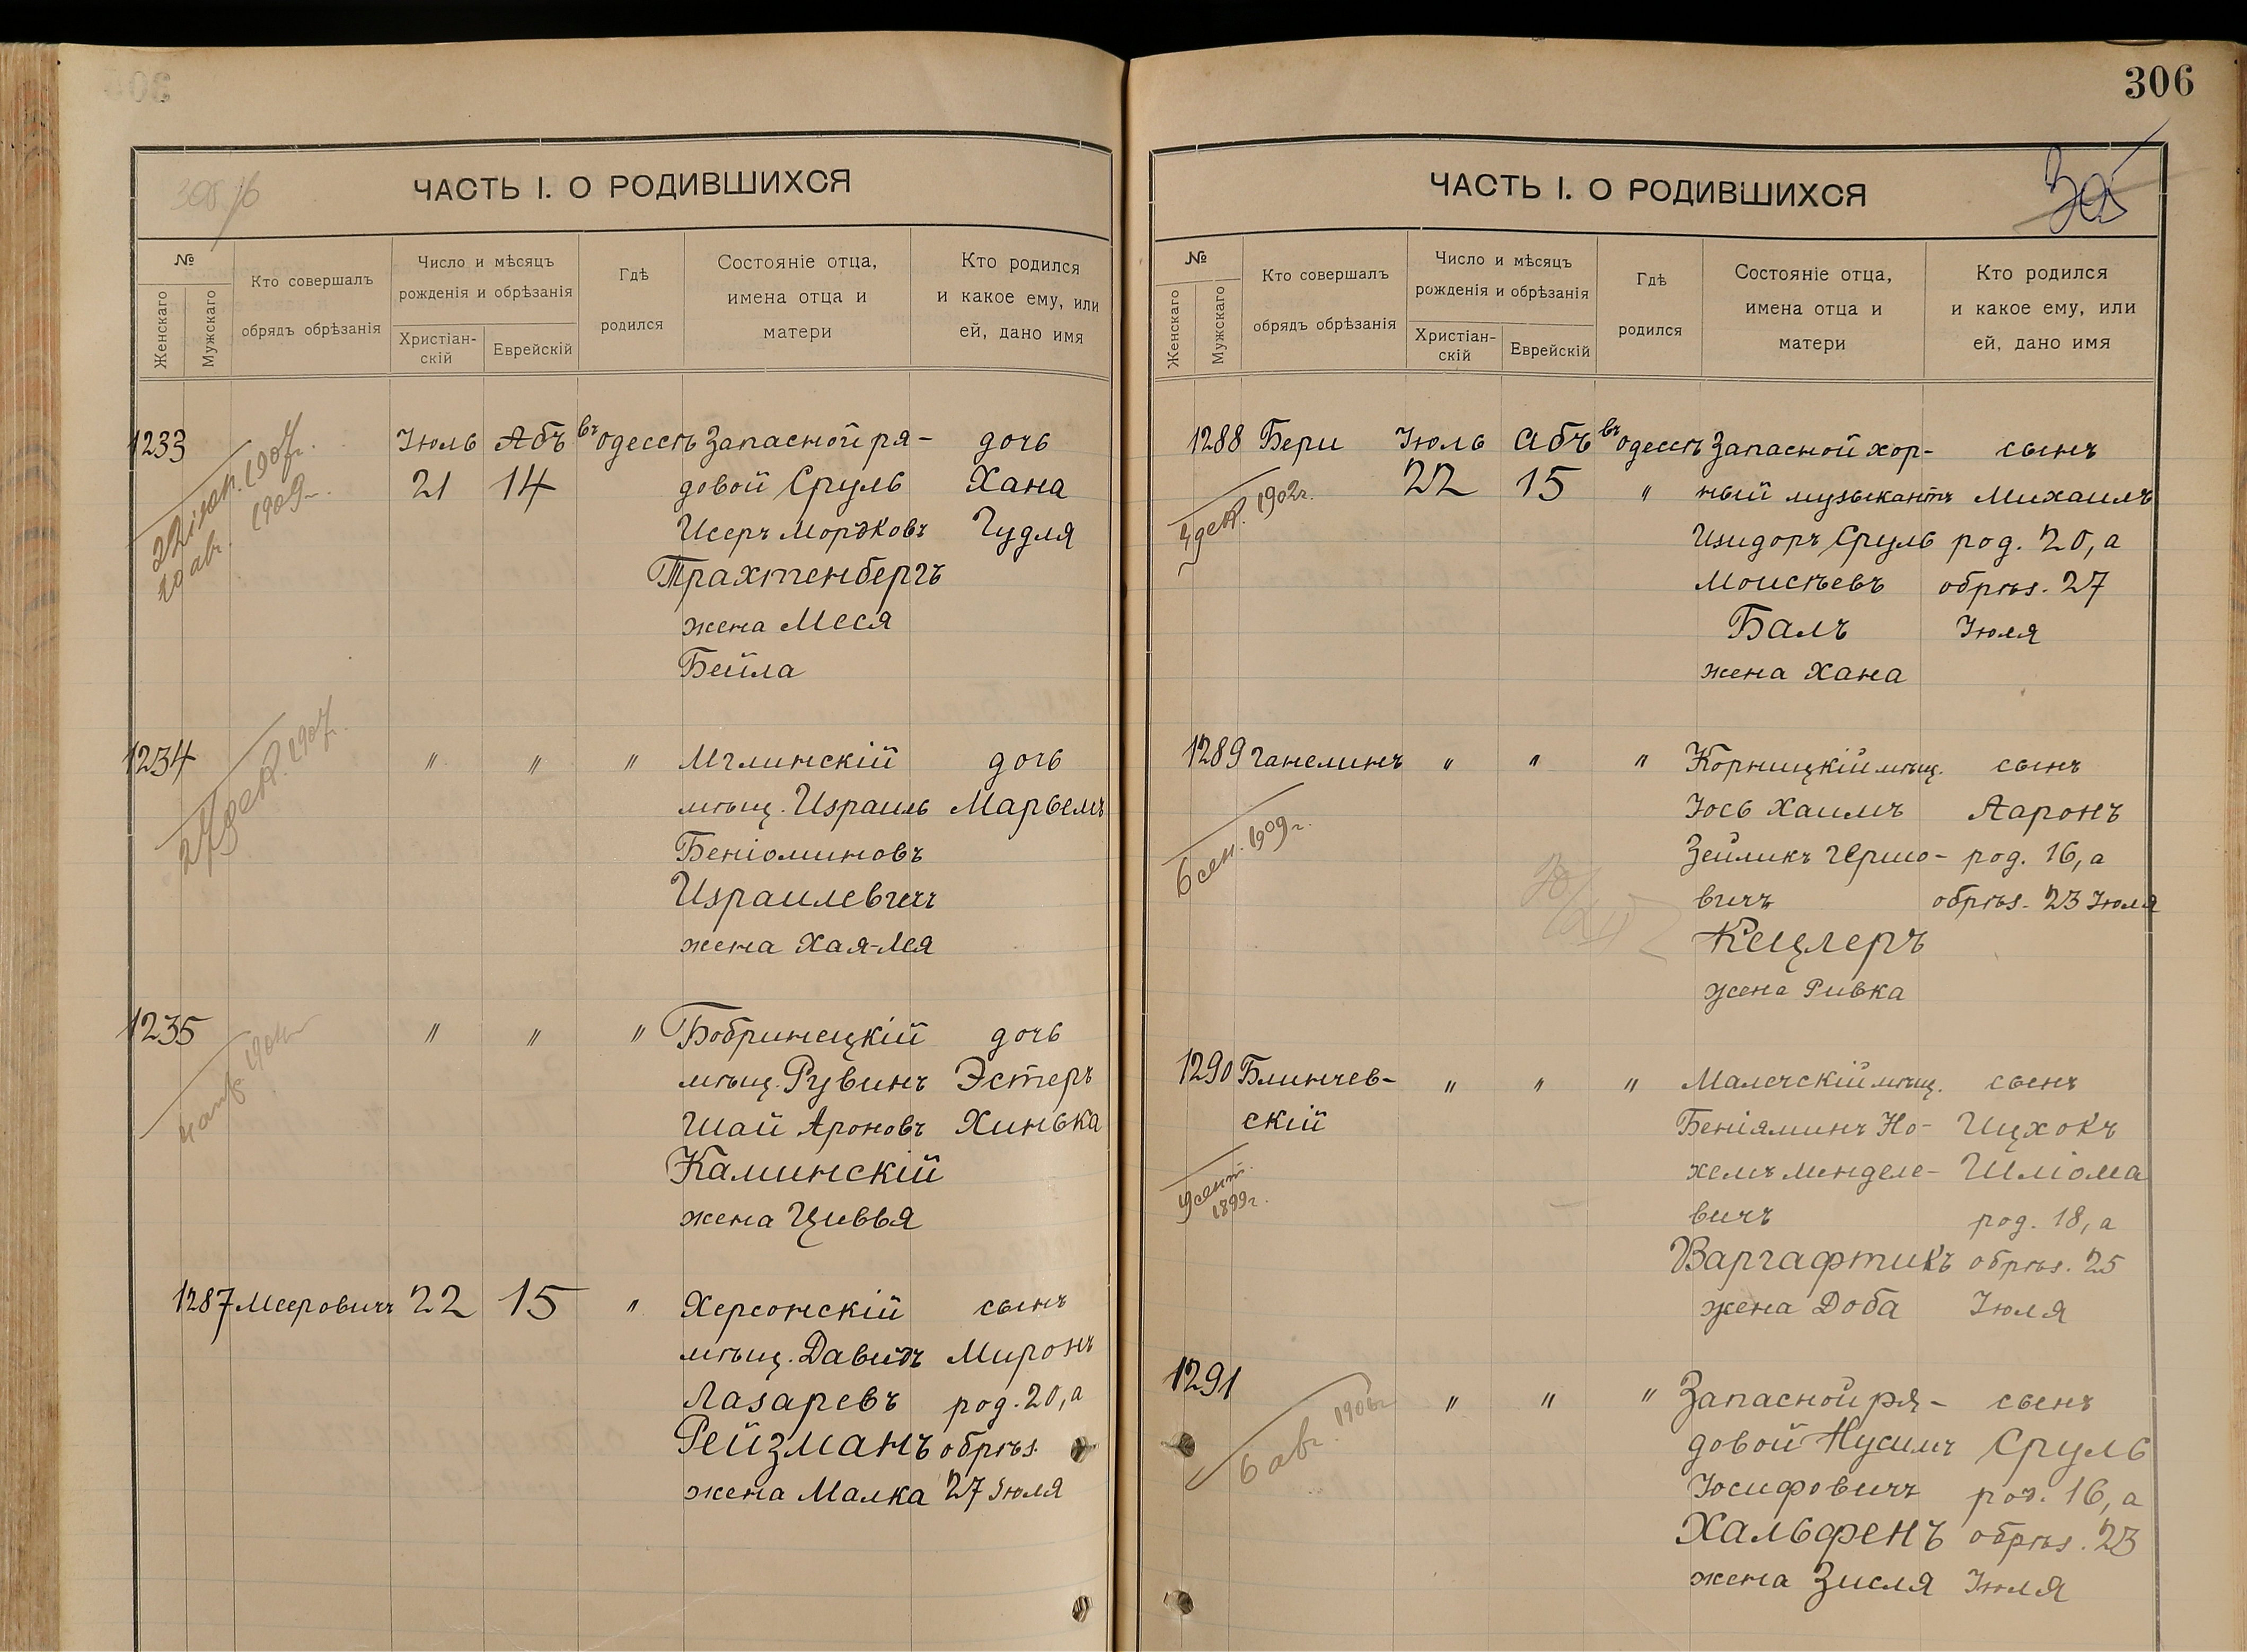 306
ЧАСТЬ I. О РОДИВШИХСЯ
№
Женскаго
Мужскаго
Кто совершалъ
обрядъ обрѣзанія
Число и мѣсяцъ
рожденія и обрѣзанія
Христіан-
скій
Еврейскій
Гдѣ
родился
Состояніе отца,
имена отца и
матери
Кто родился
и какое ему, или
ей, дано имя
1233 Іюль Абъ въ Одессѣ Запасной ря- дочь
21 14 довой Сруль Хана
Исеръ Мордковъ Гудля
Трахтенбергъ
жена Меся
Бейла
авг. 1909г.
1234 " " " Мглинскій дочь
мѣщ. Израиль Марьемъ
Беніоминовъ
Израилевичъ
жена Хая-Лея
27 дек. 1907г.
1235 " " " Бобринецкій дочь
мѣщ. Рувинъ Эстеръ
Шай Ароновъ Хинька
Каминскій
жена Цивья
1287 Мееровичъ 22 15 " Херсонскій сынъ
мѣщ. Давидъ Миронъ
Лазаревъ род. 20, а
Рейзманъ обрѣз.
жена Малка 27 Іюля
ЧАСТЬ I. О РОДИВШИХСЯ
305
№
Женскаго
Мужскаго
Кто совершалъ
обрядъ обрѣзанія
Число и мѣсяцъ
рожденія и обрѣзанія
Христіан-
скій
Еврейскій
Гдѣ
родился
Состояніе отца,
имена отца и
матери
Кто родился
и какое ему, или
ей, дано имя
1288 Бери Іюль Абъ въ Одессѣ Запасной хор- сынъ
22 15 " ный музыкантъ Михаилъ
Изидоръ Сруль род. 20, а
Моисѣевъ обрѣз. 27
Балъ Іюля
жена Хана
4 дек. 1902г.
1289 Ганелинъ " " " Корницкій мѣщ. сынъ
Іось Хаимъ Ааронъ
Зейликъ Гершо- род. 16, а
вичъ обрѣз. 23 Іюля
Кецлеръ
жена Ривка
6 сен. 1909г.
1290 Блинчев- " " " Малечскій мѣщ. сынъ
скій Беніяминъ Но- Ицхокъ
хемъ Менделе- Шліома
вичъ род. 18, а
Варгафтикъ обрѣз. 25
жена Доба Іюля
9 сент.
1899г.
1291 " " " Запасной ря- сынъ
довой Нусимъ Сруль
Іосифовичъ род. 16, а
Хальфенъ обрѣз. 23
жена Зисля Іюля
6 авг. 1906г.